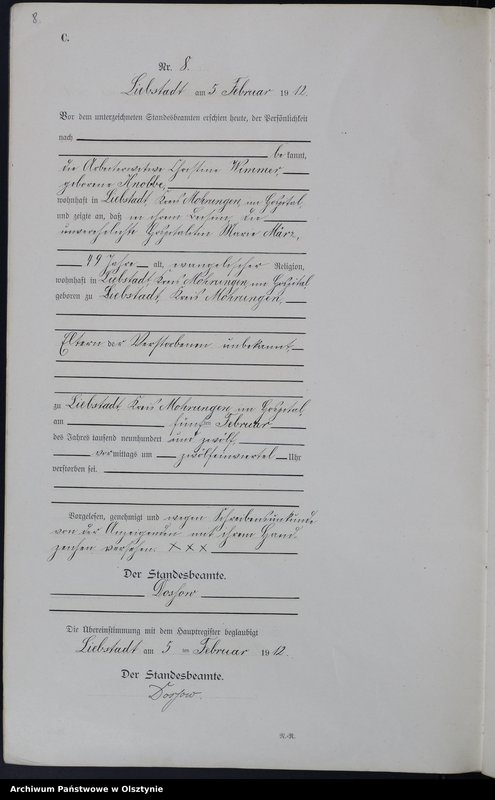 8.
C.
Nr. 8.
Liebstadt am 5 Februar 1912.
Vor dem unterzeichneten Standesbeamten erschien heute, der Persönlichkeit
nach
bekannt,
die Arbeiterwitwe Christine Wimmer
geborene Knobbe,
wohnhaft in Liebstadt Kreis Mohrungen, im Hospital,
und zeigte an, daß in ihrem Beisein, die
unverehelichte Hospitalitin Marie März,
49 Jahre alt, evangelischer Religion,
wohnhaft in Liebstadt Kreis Mohrungen, im Hospital
geboren zu Liebstadt, Kreis Mohrungen,
Eltern der Verstorbenen unbekannt,
zu Liebstadt Kreis Mohrungen, im Hospital
am fünften Februar
des Jahres tausend neunhundert und zwölf,
vormittags um zwölfeinviertel Uhr
verstorben sei.
Vorgelesen, genehmigt und wegen Schreibensunkunde
von der Anzeigenden mit ihrem Hand-
zeichen versehen. x x x
Der Standesbeamte.
Dossow
Die Übereinstimmung mit dem Hauptregister beglaubigt
Liebstadt am 5 ten Februar 1912.
Der Standesbeamte.
Dossow.
N.-R.
Archiwum Państwowe w Olsztynie